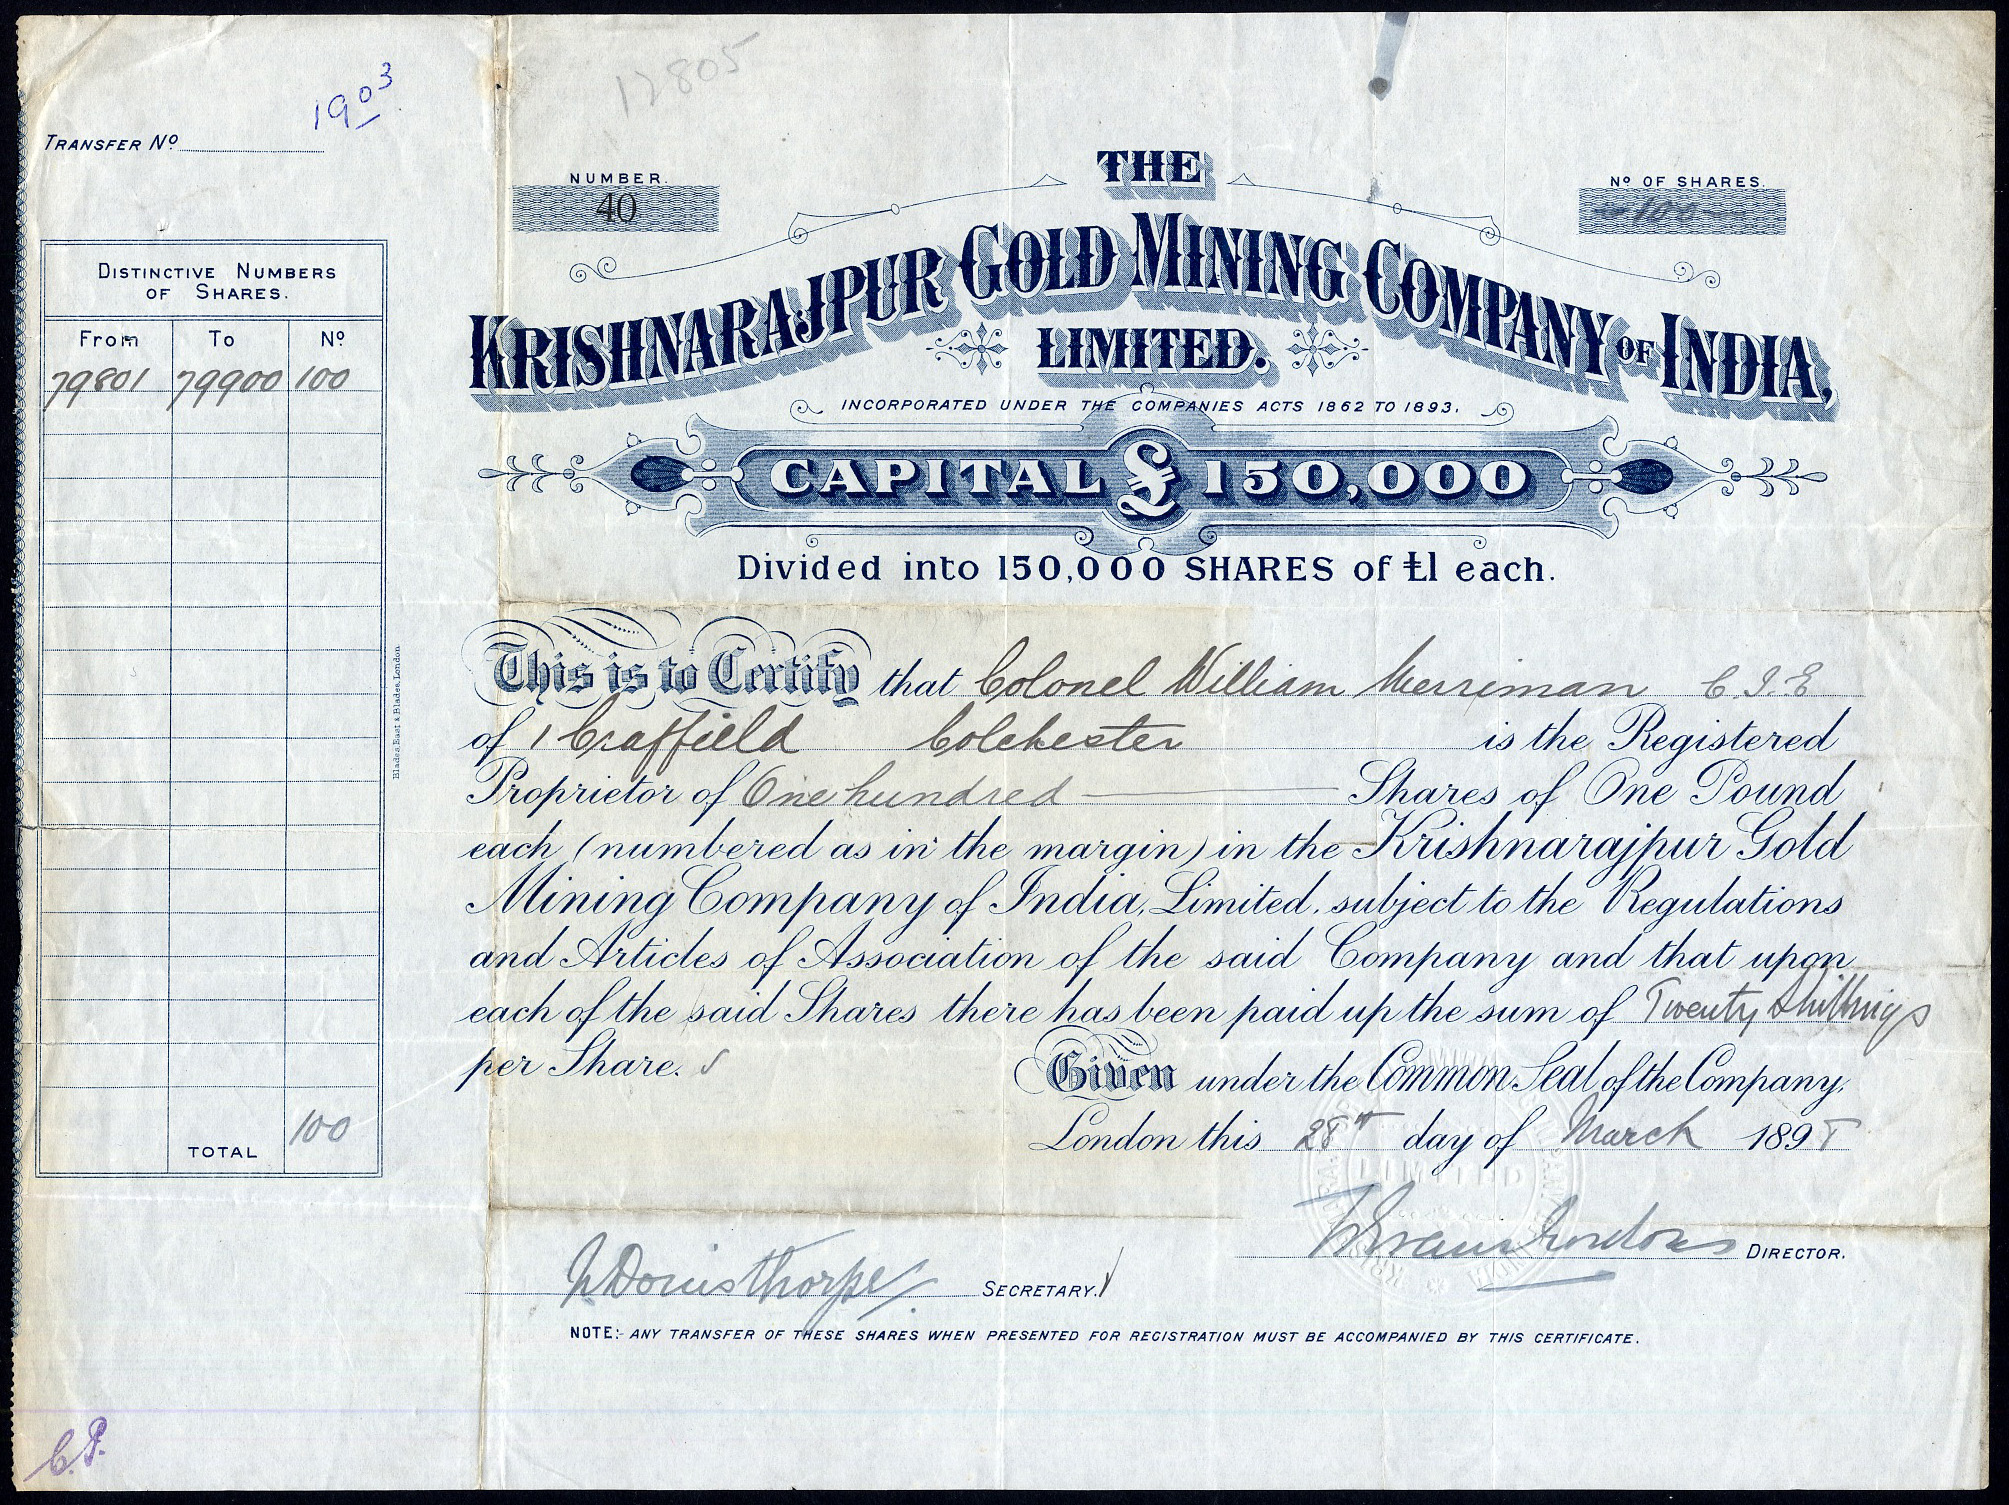 1903
12805
TRANSFER Nº
NUMBER.
40
Nº OF SHARES.
100
THE
KRISHNARAJPUR GOLD MINING COMPANY OF INDIA,
LIMITED.
INCORPORATED UNDER THE COMPANIES ACTS 1862 TO 1893.
CAPITAL £ 150,000
Divided into 150,000 SHARES of £1 each.
DISTINCTIVE NUMBERS
OF SHARES.
From To Nº
79801 79900 100
TOTAL 100
Blades, East & Blades, London.
This is to Certify that Colonel William Merriman C.I.E
of 1 Colchester is the Registered
Proprietor of One hundred Shares of One Pound
each (numbered as in the margin) in the Krishnarajpur Gold
Mining Company of India, Limited, subject to the Regulations
and Articles of Association of the said Company and that upon
each of the said Shares there has been paid up the sum of Twenty Shillings
per Share.
Given under the Common Seal of the Company,
London this 28th day of March 189
LIMITED
Donisthorpe SECRETARY.
DIRECTOR.
NOTE:- ANY TRANSFER OF THESE SHARES WHEN PRESENTED FOR REGISTRATION MUST BE ACCOMPANIED BY THIS CERTIFICATE.